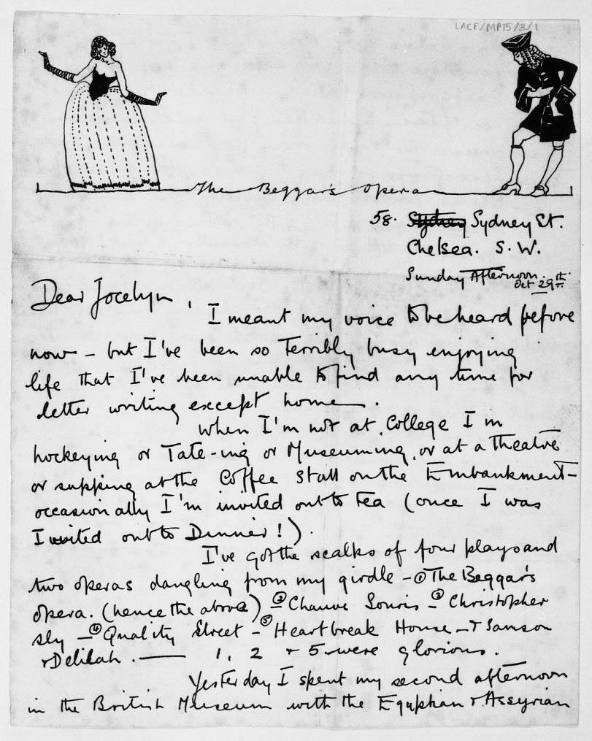 LACF/MP15/3/1
The Beggar's Opera
58. Sydney Sydney St.
Chelsea. S. W.
Sunday Afternoon.
Oct 29th.
Dear Jocelyn,
I meant my voice to be heard before
now – but I've been so terribly busy enjoying
life that I've been unable to find any time for
letter writing except home.
When I'm not at College I'm
hockeying or Tate-ing or Museuming, or at a theatre
or supping at the Coffee Stall on the Embankment –
occasionally I'm invited out to tea (once I was
Invited out to Dinner!).
I've got the scalps of four plays and
two operas dangling from my girdle – ① The Beggar's
opera. (hence the above) ② Chauve Souris – ③ Christopher
Sly – ④ Quality Street – ⑤ Heartbreak House – + Samson
+ Delilah. — 1, 2 + 5 were glorious.
Yesterday I spent my second afternoon
in the British Museum with the Egyptian + Assyrian